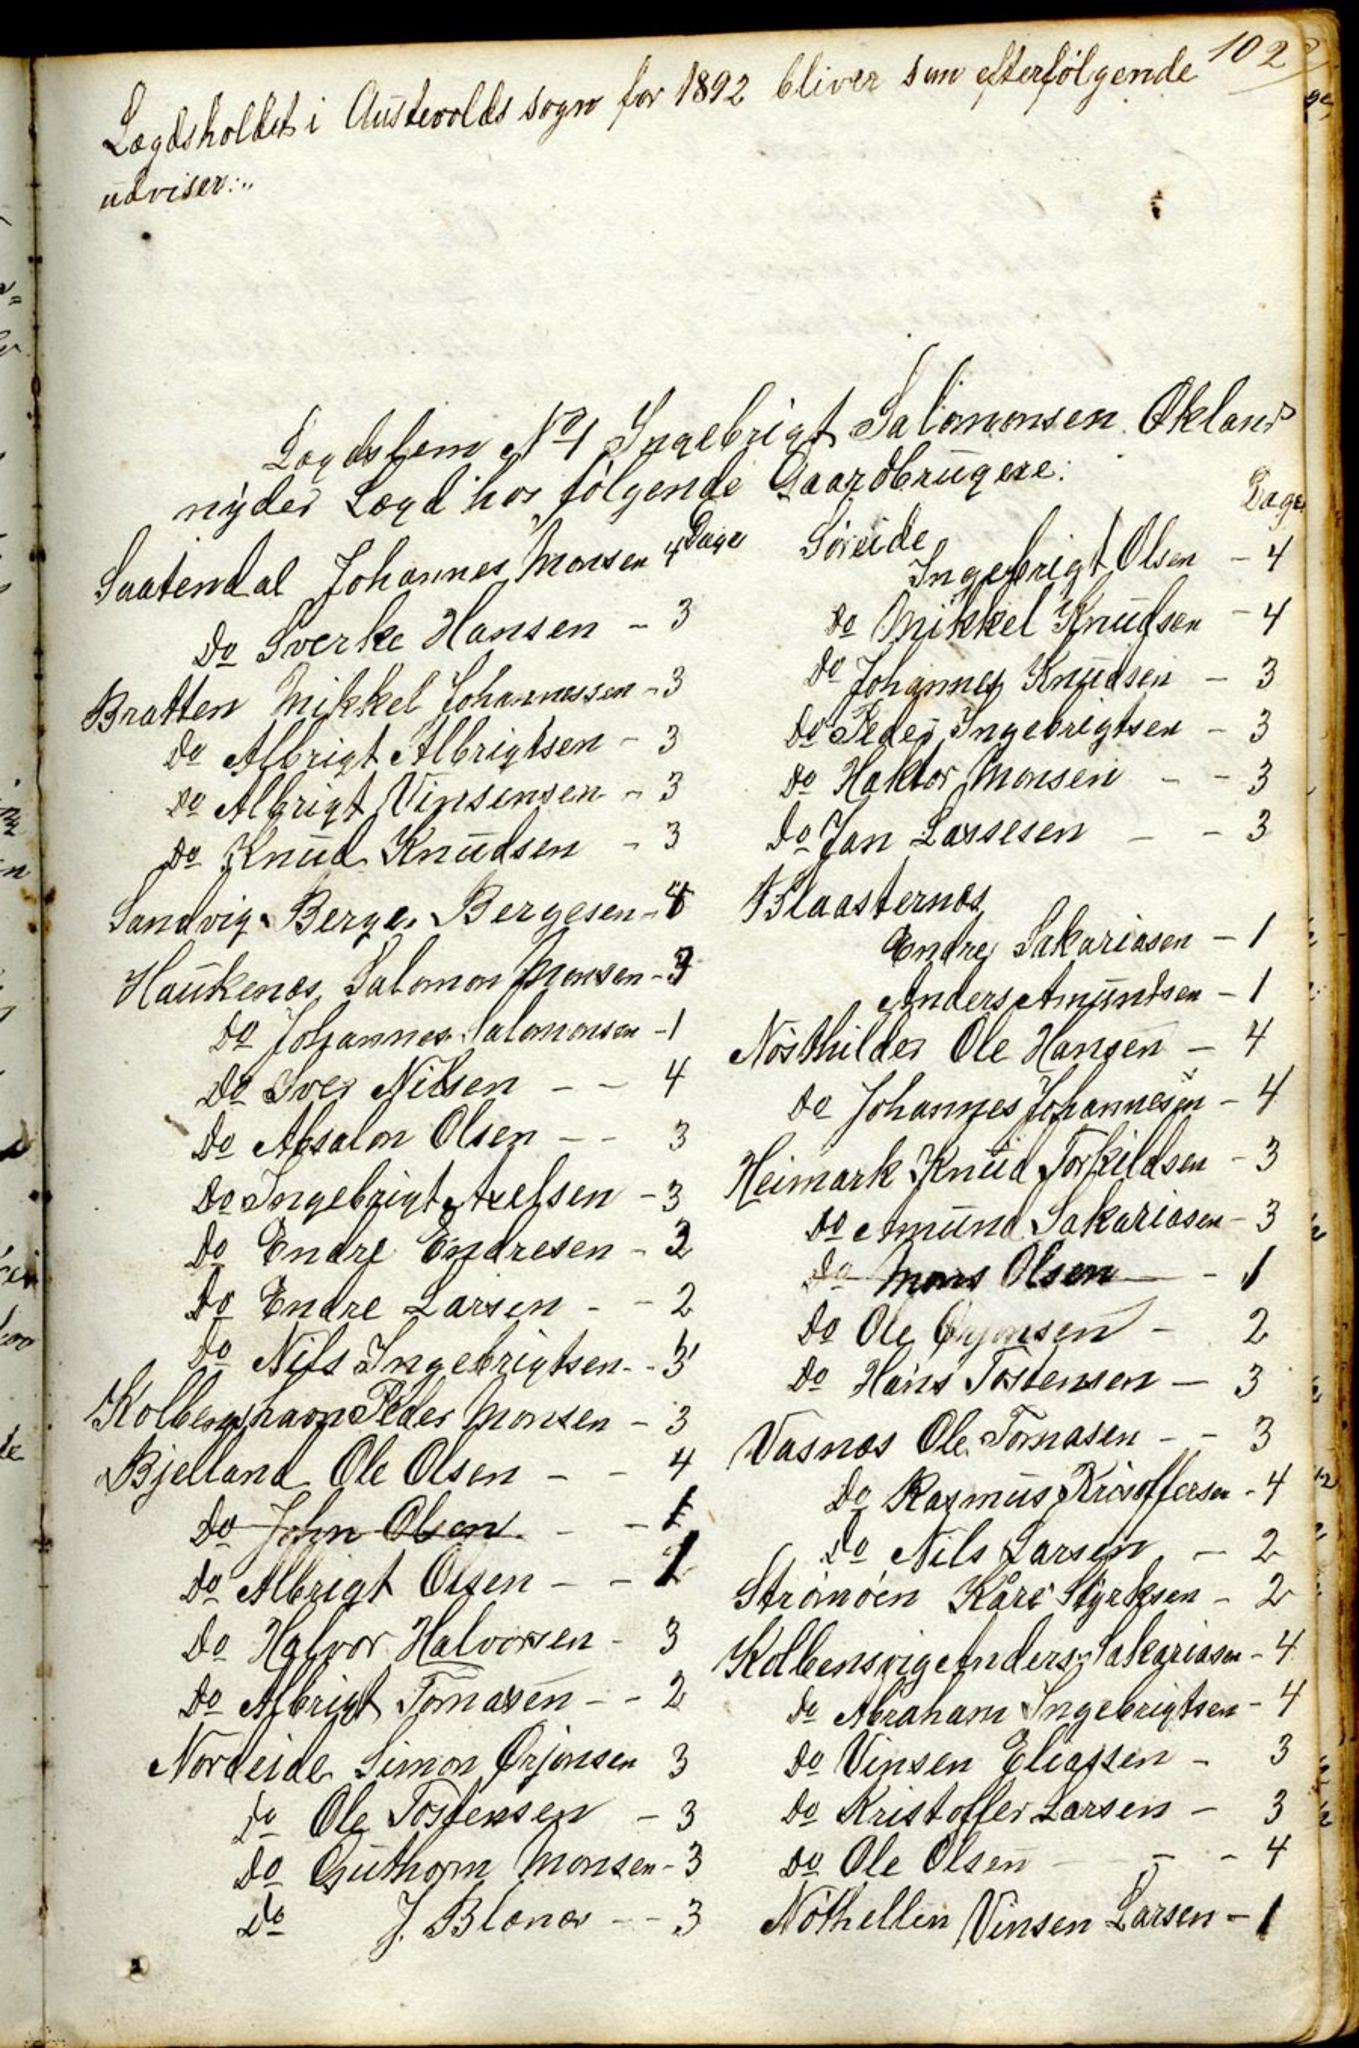 102
Lægdsholdet i Austevolds sogn for 1892 bliver sun efterfölgende
udviser:..
Lægdslem No 1 Ingebrigt Salomonsen Økland
nyder Lægd hos følgende Gaardbrugere:
Saatendal Johannes Monsen 4 Dage
Do Sverke Hansen - 3
Bratten Mikkel Johannessen - 3
Do Albrigt Albrigtsen - 3
Do Albrigt Vinsensen - 3
Do Knud Knudsen - 3
Sandvig Berge Bergesen - 4
Haukenæs Salomon Monsen - 3
Do Johannes Salomonsen - 1
Do Iver Nilsen - - 4
Do Absalon Olsen - - 3
Do Ingebrigt Axelsen - 3
Do Endre Endresen - 2
Do Endre Larsen - - 2
Do Nils Ingebrigtsen - - 3
Kolbenshavn Peder Monsen - 3
Bjelland Ole Olsen - - 4
Do John Olsen - - 1
Do Albrigt Olsen - - 1
Do Halvor Halvorsen - 3
Do Albrigt Tomasen - - 2
Nordeide Simon Ørjansen 3
Do Ole Tostensen - 3
Do Guthorm Monsen - 3
Do J. Blænes - - 3
Dage
Söreide
Ingebrigt Olsen - 4
Do Mikkel Knudsen - 4
Do Johannes Knudsen - 3
Do Peder Ingebrigtsen - 3
Do Haktor Monsen - - 3
Do Jan Lassesen - - 3
Blaasternæs
Endre Sakariasen - 1
Anders Amundsen - 1
Nösthilder Ole Hansen - 4
Do Johannes Johannesen - 4
Heimark Knud Torkildsen - 3
Do Amund Sakariasen - 3
Do Mons Olsen - - 1
Do Ole Ørjansen - 2
Do Hans Tostensen - 3
Vasnæs Ole Tomasen - - 3
Do Rasmus Kristoffersen - 4
Do Nils Larsen - 2
Strömöen Kåre Styrksen - 2
Kolbensvig Anders Sakariasen - 4
Do Abraham Ingebrigtsen - 4
Do Vinsen Eliassen - 3
Do Kristoffer Larsen - 3
Do Ole Olsen - - - 4
Nöthellen Vinsen Larsen - 1